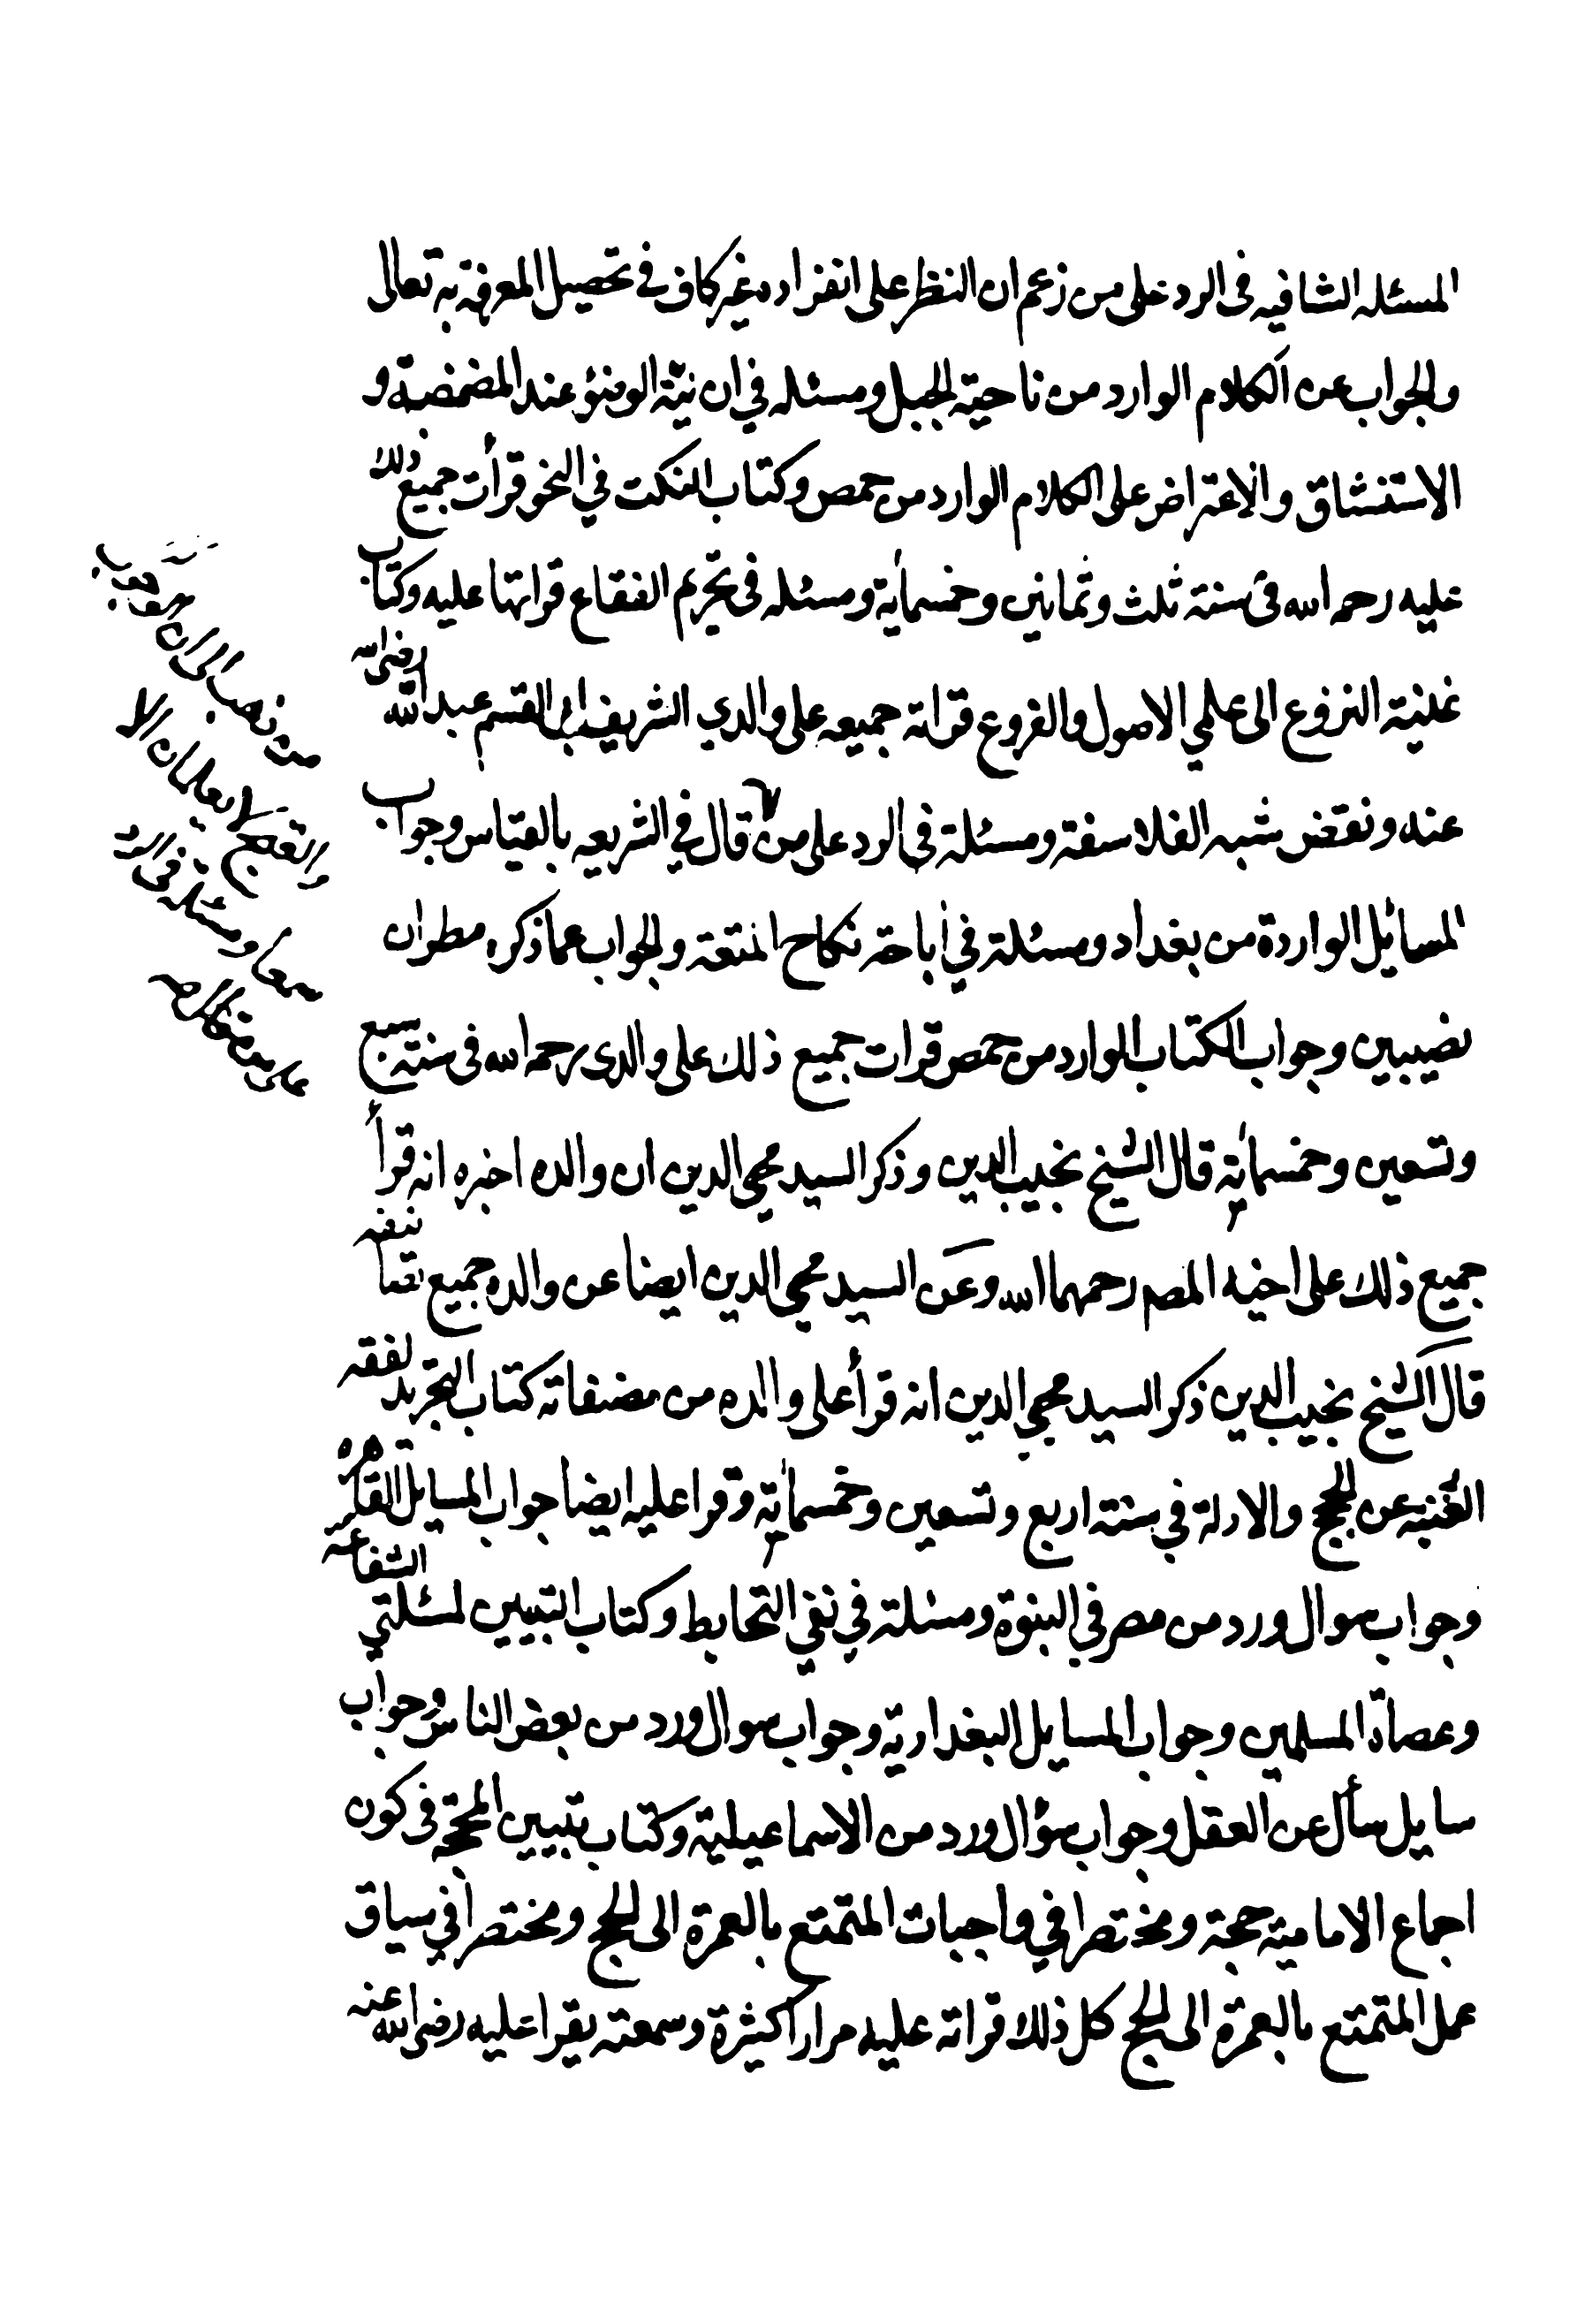 المسئله الشافيه فى الرد على من زعم ان النظر على انفراده غير كاف فى تحصيل المعرفة به تعالى
والجواب عن الكلام الوارد من ناحية الجبل ومسئله في ان نيّة الوضؤ عند المضمضة و
الاستنشاق والاعتراض على الكلام الوارد من حمص وكتاب النكت في النحو قرأت جميع ذلك
عليه رحمه الله فى سنة ثلث وثمانين وخمسمائة ومسئله فى تحريم الفقاع قراتها عليه وكتاب
غنية النزوع الى علمي الاصول والفروع قراته جميعه على والدي الشريف ابى القسم عبدالله رضى الله
عنه ونقض شبه الفلاسفة ومسئلة في الرد على من قال في الشريعه بالقياس وجواب
المسائل الواردة من بغداد ومسئلة في اباحة نكاح المتعة والجواب عما ذكره مطران
نصيبين وجواب الكتاب الوارد من حمص قرات جميع ذلك على والدى رحمه الله فى سنة سبع
وتسعين وخمسمائة قال الشيخ نجيب الدين وذكر السيد محيي الدين ان والده اخبره انه قرأ
جميع ذلك على اخيه المصم رحمهما الله وعن السيد محيي الدين ايضا عن والده جميع تصانيفه
قال الشيخ نجيب الدين ذكر السيد محيي الدين انه قرأ على والده من مصنفاته كتاب التجريد لفقه
الغنية عن الحجج والادلة في سنة اربع وتسعين وخمسمائة وقرا عليه ايضا جواب المسايل القاهره
وجواب سوال ورد من مصر في النبوة ومسئلة في نفي التحابط وكتاب التبيين لمسئلتي الشفاعه
وعصاة المسلمين وجواب المسايل البغدادية وجواب سوال ورد من بعض الناس وجواب
سايل سأل عن العقل وجواب سؤال ورد من الاسماعيلية وكتاب تبيين المحجة فى كون
اجماع الامامية حجة ومختصرا في واجبات المتمتع بالعمرة الى الحج ومختصرا في سياق
عمل المتمتع بالعمرة الى الحج كل ذلك قراته عليه مرارا كثيرة وسمعته يقرا عليه رضى الله عنه